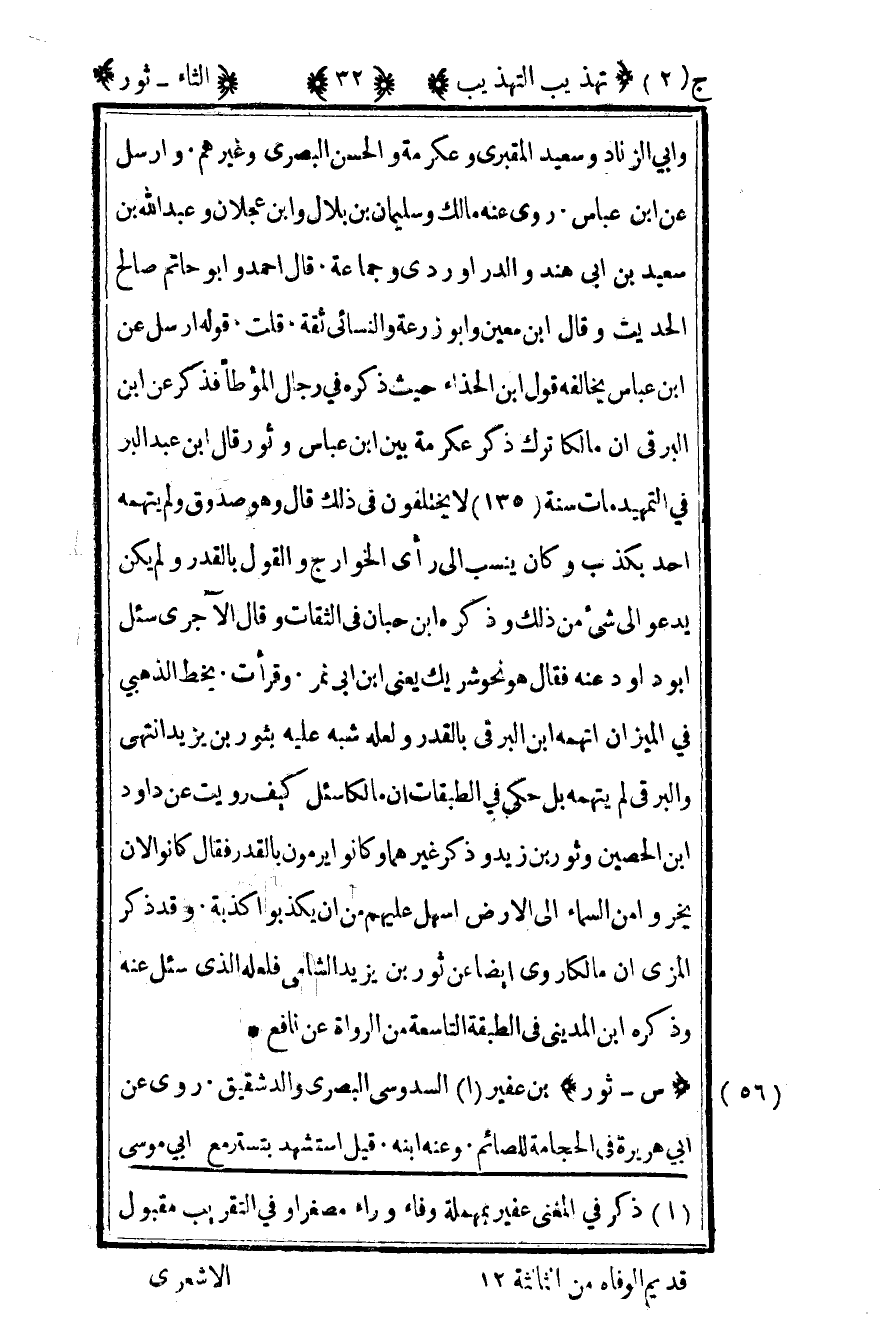 ج (٢) ﴿ تهذيب التهذيب ﴾ ﴿ ٣٢ ﴾ ﴿ الثاء - ثور ﴾
وابي الزناد وسعيد المقبرى وعكرمة والحسن البصرى وغيرهم · وارسل
عن ابن عباس · روى عنه مالك وسليمان بن بلال وابن عجلان وعبدالله بن
سعيد بن ابى هند والدراوردى وجماعة · قال احمد وابو حاتم صالح
الحديث وقال ابن معين وابو زرعة والنسائى ثقة · قلت · قوله ارسل عن
ابن عباس يخالفه قول ابن الحذاء حيث ذكره في رجال المؤطأ فذكر عن ابن
البرقى ان مالكا ترك ذكر عكرمة بين ابن عباس وثور قال ابن عبدالبر
في التمهيد مات سنة (١٣٥) لا يختلفون فى ذلك قال وهو صدوق ولم يتهمه
احد بكذب وكان ينسب الى رأى الخوارج والقول بالقدر ولم يكن
يدعو الى شئ من ذلك وذكره ابن حبان فى الثقات وقال الآجرى سئل
ابوداود عنه فقال هو نحو شريك يعنى ابن ابى نمر · وقرأت · بخط الذهبي
في الميزان اتهمه ابن البرقى بالقدر ولعله شبه عليه بثور بن يزيد انتهى
والبرقى لم يتهمه بل حكى في الطبقات ان مالكا سئل كيف رويت عن داود
ابن الحصين وثور بن زيد وذكر غيرهما وكانوا يرمون بالقدر فقال كانوا لان
يخروا من السماء الى الارض اسهل عليهم من ان يكذبوا كذبة · وقد ذكر
المزى ان مالكا روى ايضا عن ثور بن يزيد الشامى فلعله الذى سئل عنه
وذكره ابن المدينى فى الطبقة التاسعة من الرواة عن نافع •
(٥٦) ﴿ س - ثور ﴾ بن عفير (١) السدوسى البصرى والد شقيق · روى عن
ابي هريرة فى الحجامة للصائم · وعنه ابنه · قيل استشهد بتستر مع ابي موسى
(١) ذكر في المغنى عفير بمهملة وفاء وراء مصغرا وفي التقريب مقبول
قديم الوفاه من الثالثة ١٢ الاشعرى